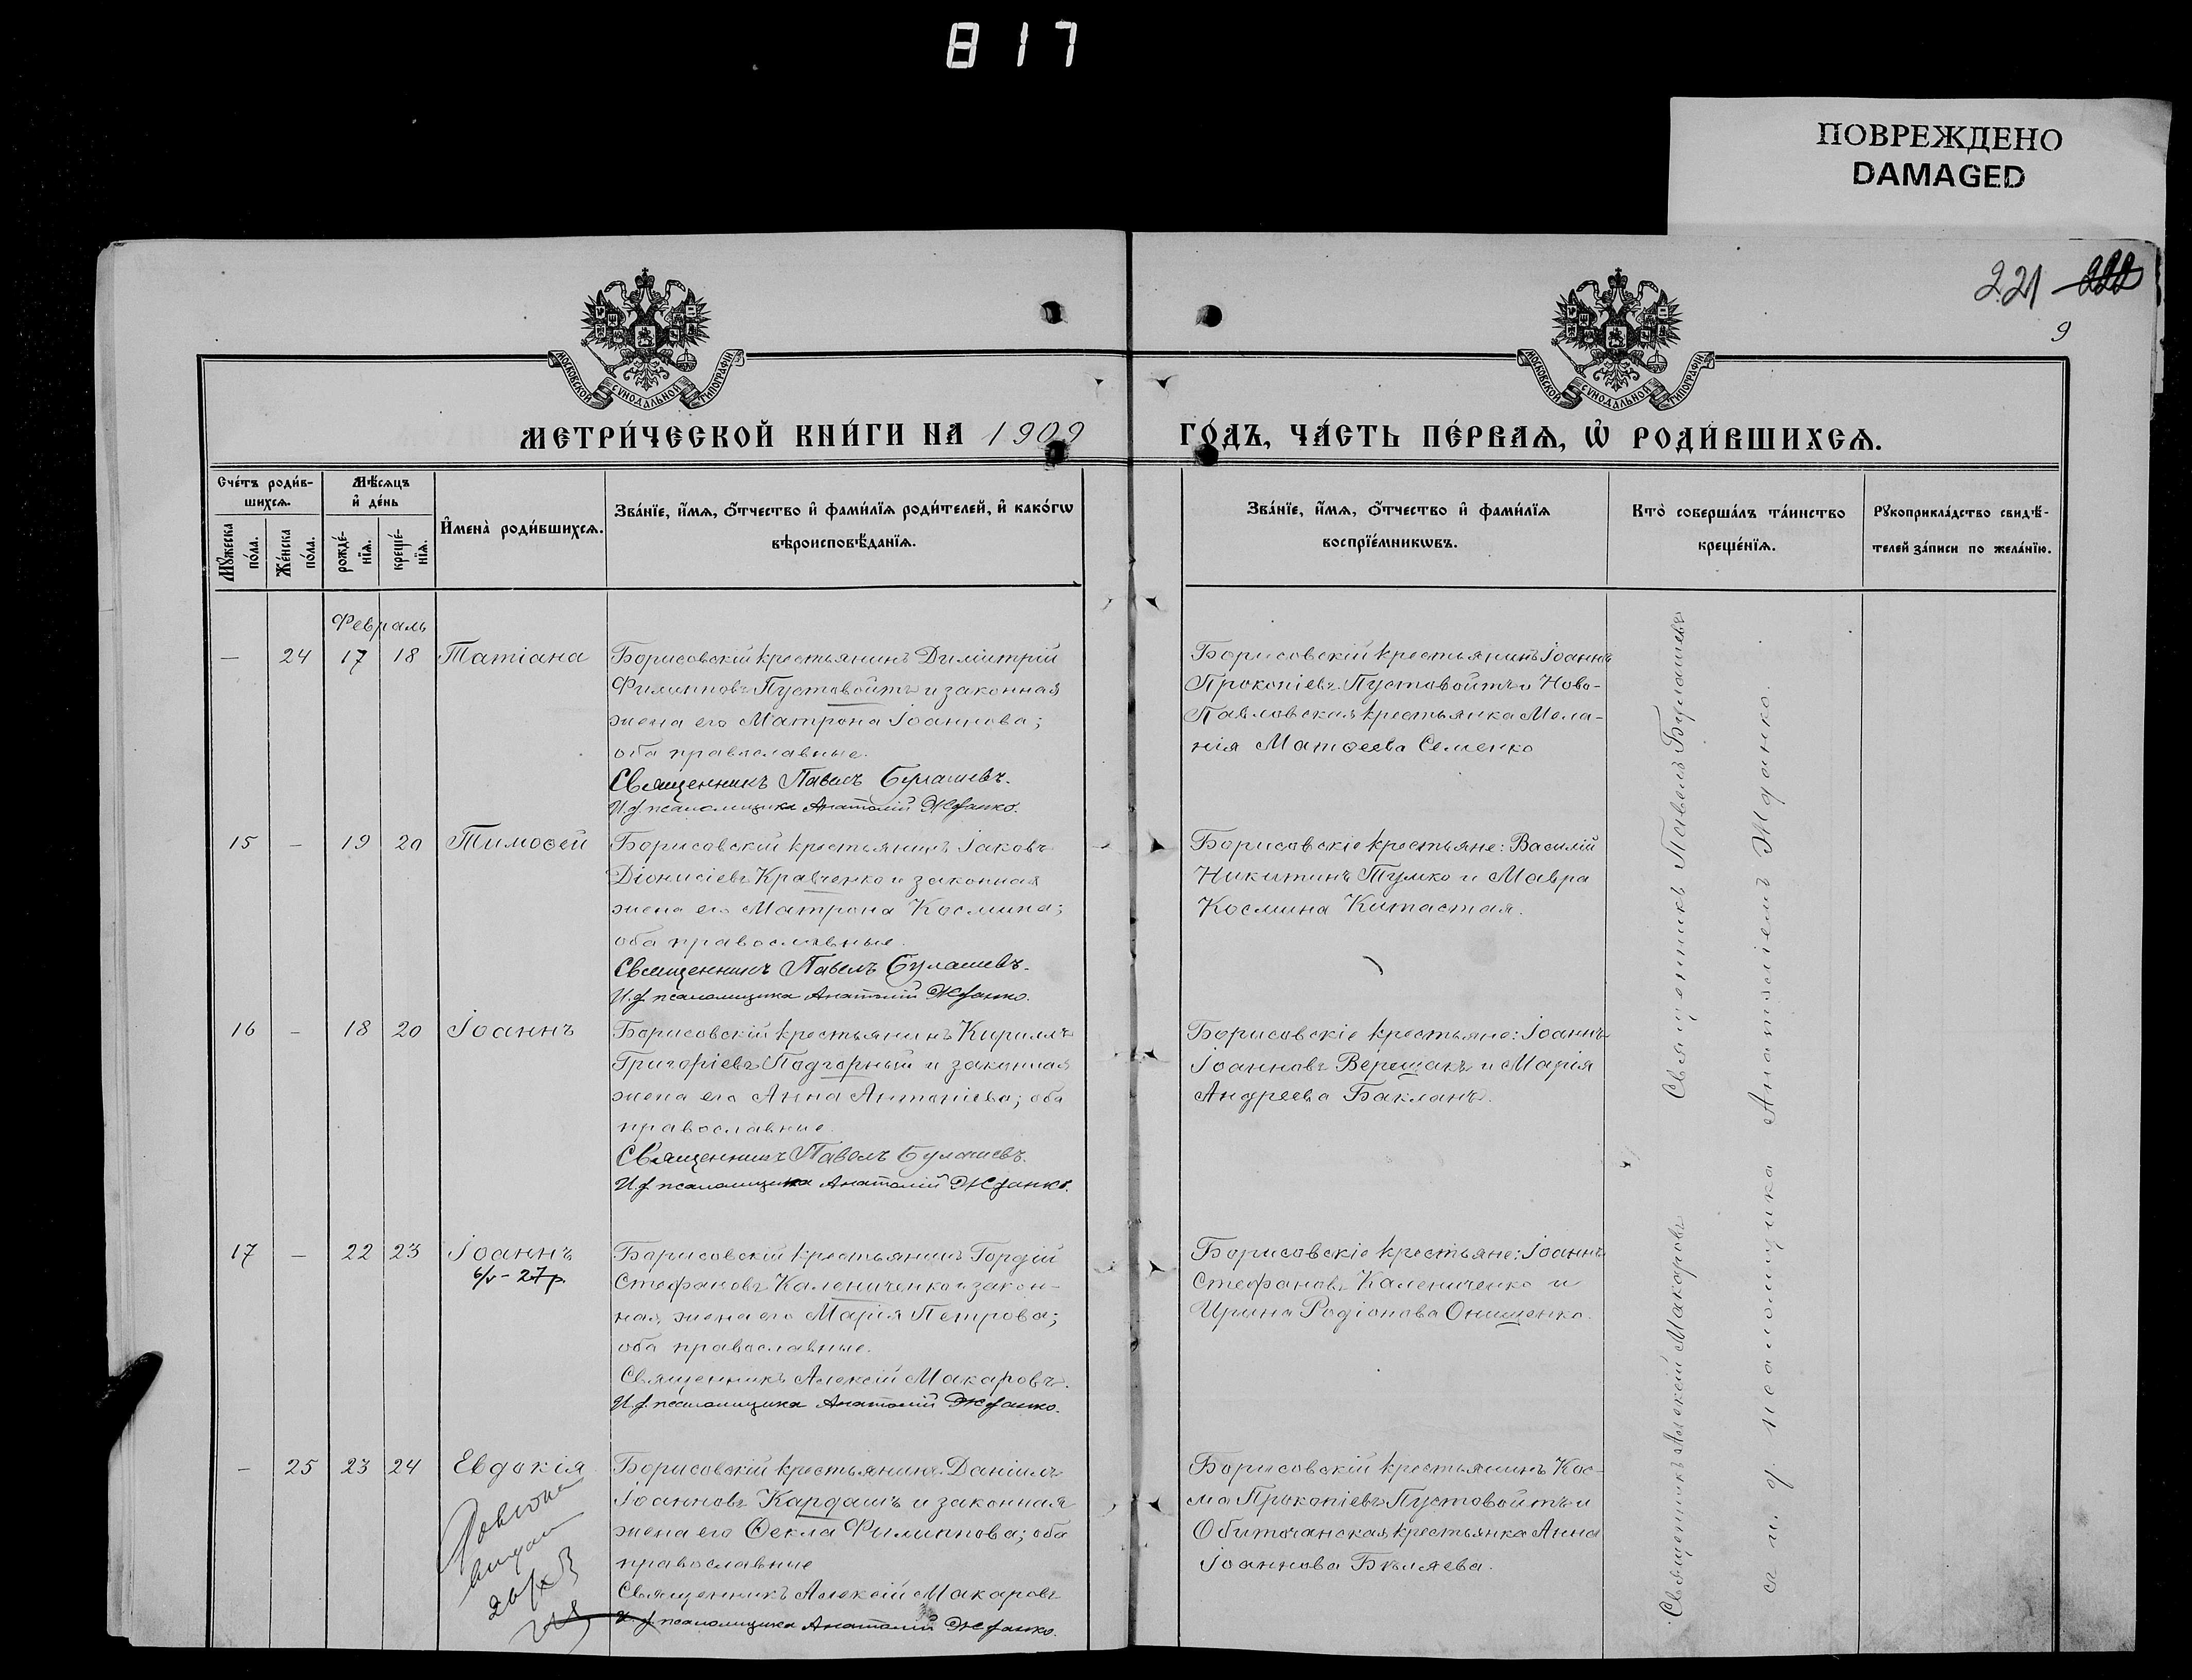 817
ПОВРЕЖДЕНО
DAMAGED
221 222
9
МОСКОВСКОЙ СѴНОДАЛЬНОЙ ТИПОГРАФІИ
МОСКОВСКОЙ СѴНОДАЛЬНОЙ ТИПОГРАФІИ
МЕТРИ́ЧЕСКОЙ КНИ́ГИ НА 1909
ГО́ДЪ, ЧА́СТЬ ПЕ́РВАѦ, Ѡ҆ РОДИ́ВШИХСѦ.
Сче́тъ роди́в-
шихсѧ.
Мꙋ́жеска
по́ла.
Же́нска
по́ла.
Мѣ́сѧцъ
и҆ де́нь
рожде́-
нїѧ.
креще́-
нїѧ.
И҆мена̀ роди́вшихсѧ.
Зва́нїе, и҆́мѧ, ѻ҆́тчество и҆ фами́лїѧ роди́телей, и҆ како́гѡ
вѣроисповѣ́данїѧ.
Зва́нїе, и҆́мѧ, ѻ҆́тчество и҆ фами́лїѧ
воспрїе́мникѡвъ.
Кто̀ соверша́лъ та́инство
креще́нїѧ.
Рꙋкоприкла́дство свидѣ́-
телей за́писи по жела́нїю.
Февраль
— 24 17 18 Татіана
Борисовскій крестьянинъ Димитрій
Филипповъ Пустовойтъ и законная
жена его Матрона Іоаннова;
оба православные.
Священникъ Павелъ Булашевъ.
И.д. псаломщика Анатолій Жданко.
Борисовскій крестьянинъ Іоаннъ
Прокопіевъ Пустовойтъ и Ново-
Павловская крестьянка Мела-
нія Матѳеева Семенко
15 — 19 20 Тимоѳей
Борисовскій крестьянинъ Іаковъ
Діонисіевъ Кравченко и законная
жена его Матрона Космина;
оба православные.
Священникъ Павелъ Булашевъ.
И.д. псаломщика Анатолій Жданко.
Борисовскіе крестьяне: Василій
Никитинъ Тумко и Мавра
Космина Китастая.
16 — 18 20 Іоаннъ
Борисовскій крестьянинъ Кириллъ
Григоріевъ Подгорный и законная
жена его Анна Антоніева; оба
православные.
Священникъ Павелъ Булашевъ.
И.д. псаломщика Анатолій Жданко.
Борисовскіе крестьяне: Іоаннъ
Іоанновъ Верещакъ и Марія
Андреева Бакланъ.
17 — 22 23 Іоаннъ
6/v - 27 р.
Борисовскій крестьянинъ Гордій
Стефановъ Калениченко и закон-
ная жена его Марія Петрова;
оба православные.
Священникъ Алексій Макаровъ.
И.д. псаломщика Анатолій Жданко.
Борисовскіе крестьяне: Іоаннъ
Стефановъ Калениченко и
Ирина Родіонова Онищенко.
— 25 23 24 Евдокія
Борисовскій крестьянинъ Даніилъ
Іоанновъ Кардашъ и законная
жена его Ѳекла Филиппова; оба
православные
Священникъ Алексій Макаровъ
И.д. псаломщика Анатолій Жданко.
Борисовскій крестьянинъ Кос-
ма Прокопіевъ Пустовойтъ и
Обиточанская крестьянка Анна
Іоаннова Бѣляева.
Священникъ Алексій Макаровъ Священникъ Павелъ Булашевъ
съ и. д. псаломщика Анатоліемъ Жданко.